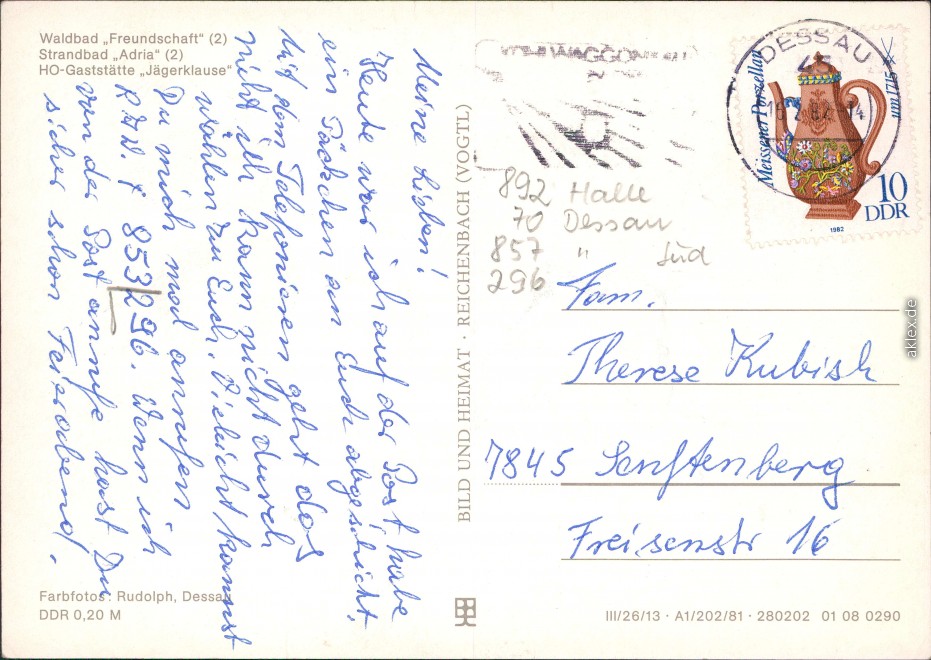 Waldbad „Freundschaft“ (2)
Strandbad „Adria“ (2)
HO-Gaststätte „Jägerklause“
Meine Lieben!
Heute war ich auf der Post habe
ein Päckchen an Euch abgeschickt,
Mit dem Telefonieren geht das
nicht ich kann nicht durch
wählen zu Euch. Vieleicht kannst
Du mich mal anrufen
853296. Wenn ich
von der Post anrufe hast Du
sicher schon Feierabend.
Farbfotos: Rudolph, Dessau
DDR 0,20 M
BILD UND HEIMAT · REICHENBACH (VOGTL)
WAGGON
DESSAU
Meissener Porzellan
seit 1715
10
DDR
1982
892 Halle
70 Dessau
857 " Süd
296
Fam.
Therese Kubisch
7845 Senftenberg
Freisenstr 16
III/26/13 · A1/202/81 · 280202 01 08 0290
aklex.de